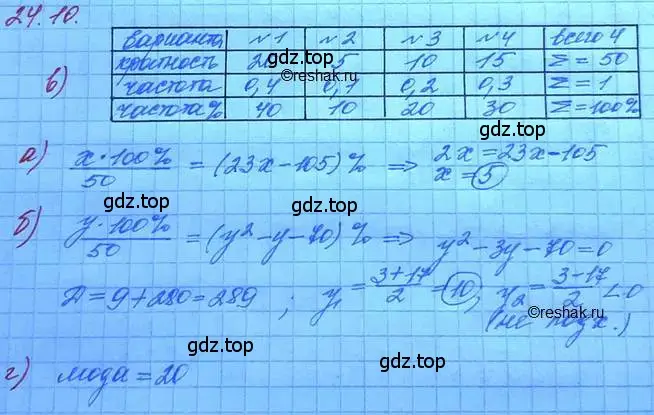 24.10.
варианта №1 №2 №3 №4 всего 4
в) кратность 20 5 10 15 Σ = 50
частота 0,4 0,1 0,2 0,3 Σ = 1
частота % 40 10 20 30 Σ = 100%
©reshak.ru
gdz.top
а) x·100% / 50 = (23x - 105) % ⇒ 2x = 23x - 105
x = 5
gdz.top gdz.top
б) y·100% / 50 = (y² - y - 70) % ⇒ y² - 3y - 70 = 0
gdz.top
Д = 9 + 280 = 289 ; y₁ = 3+17 / 2 = 10, y₂ = 3-17 / 2 < 0
©reshak.ru
(не подх.)
gdz.top gdz.top
г) мода = 20
gdz.top